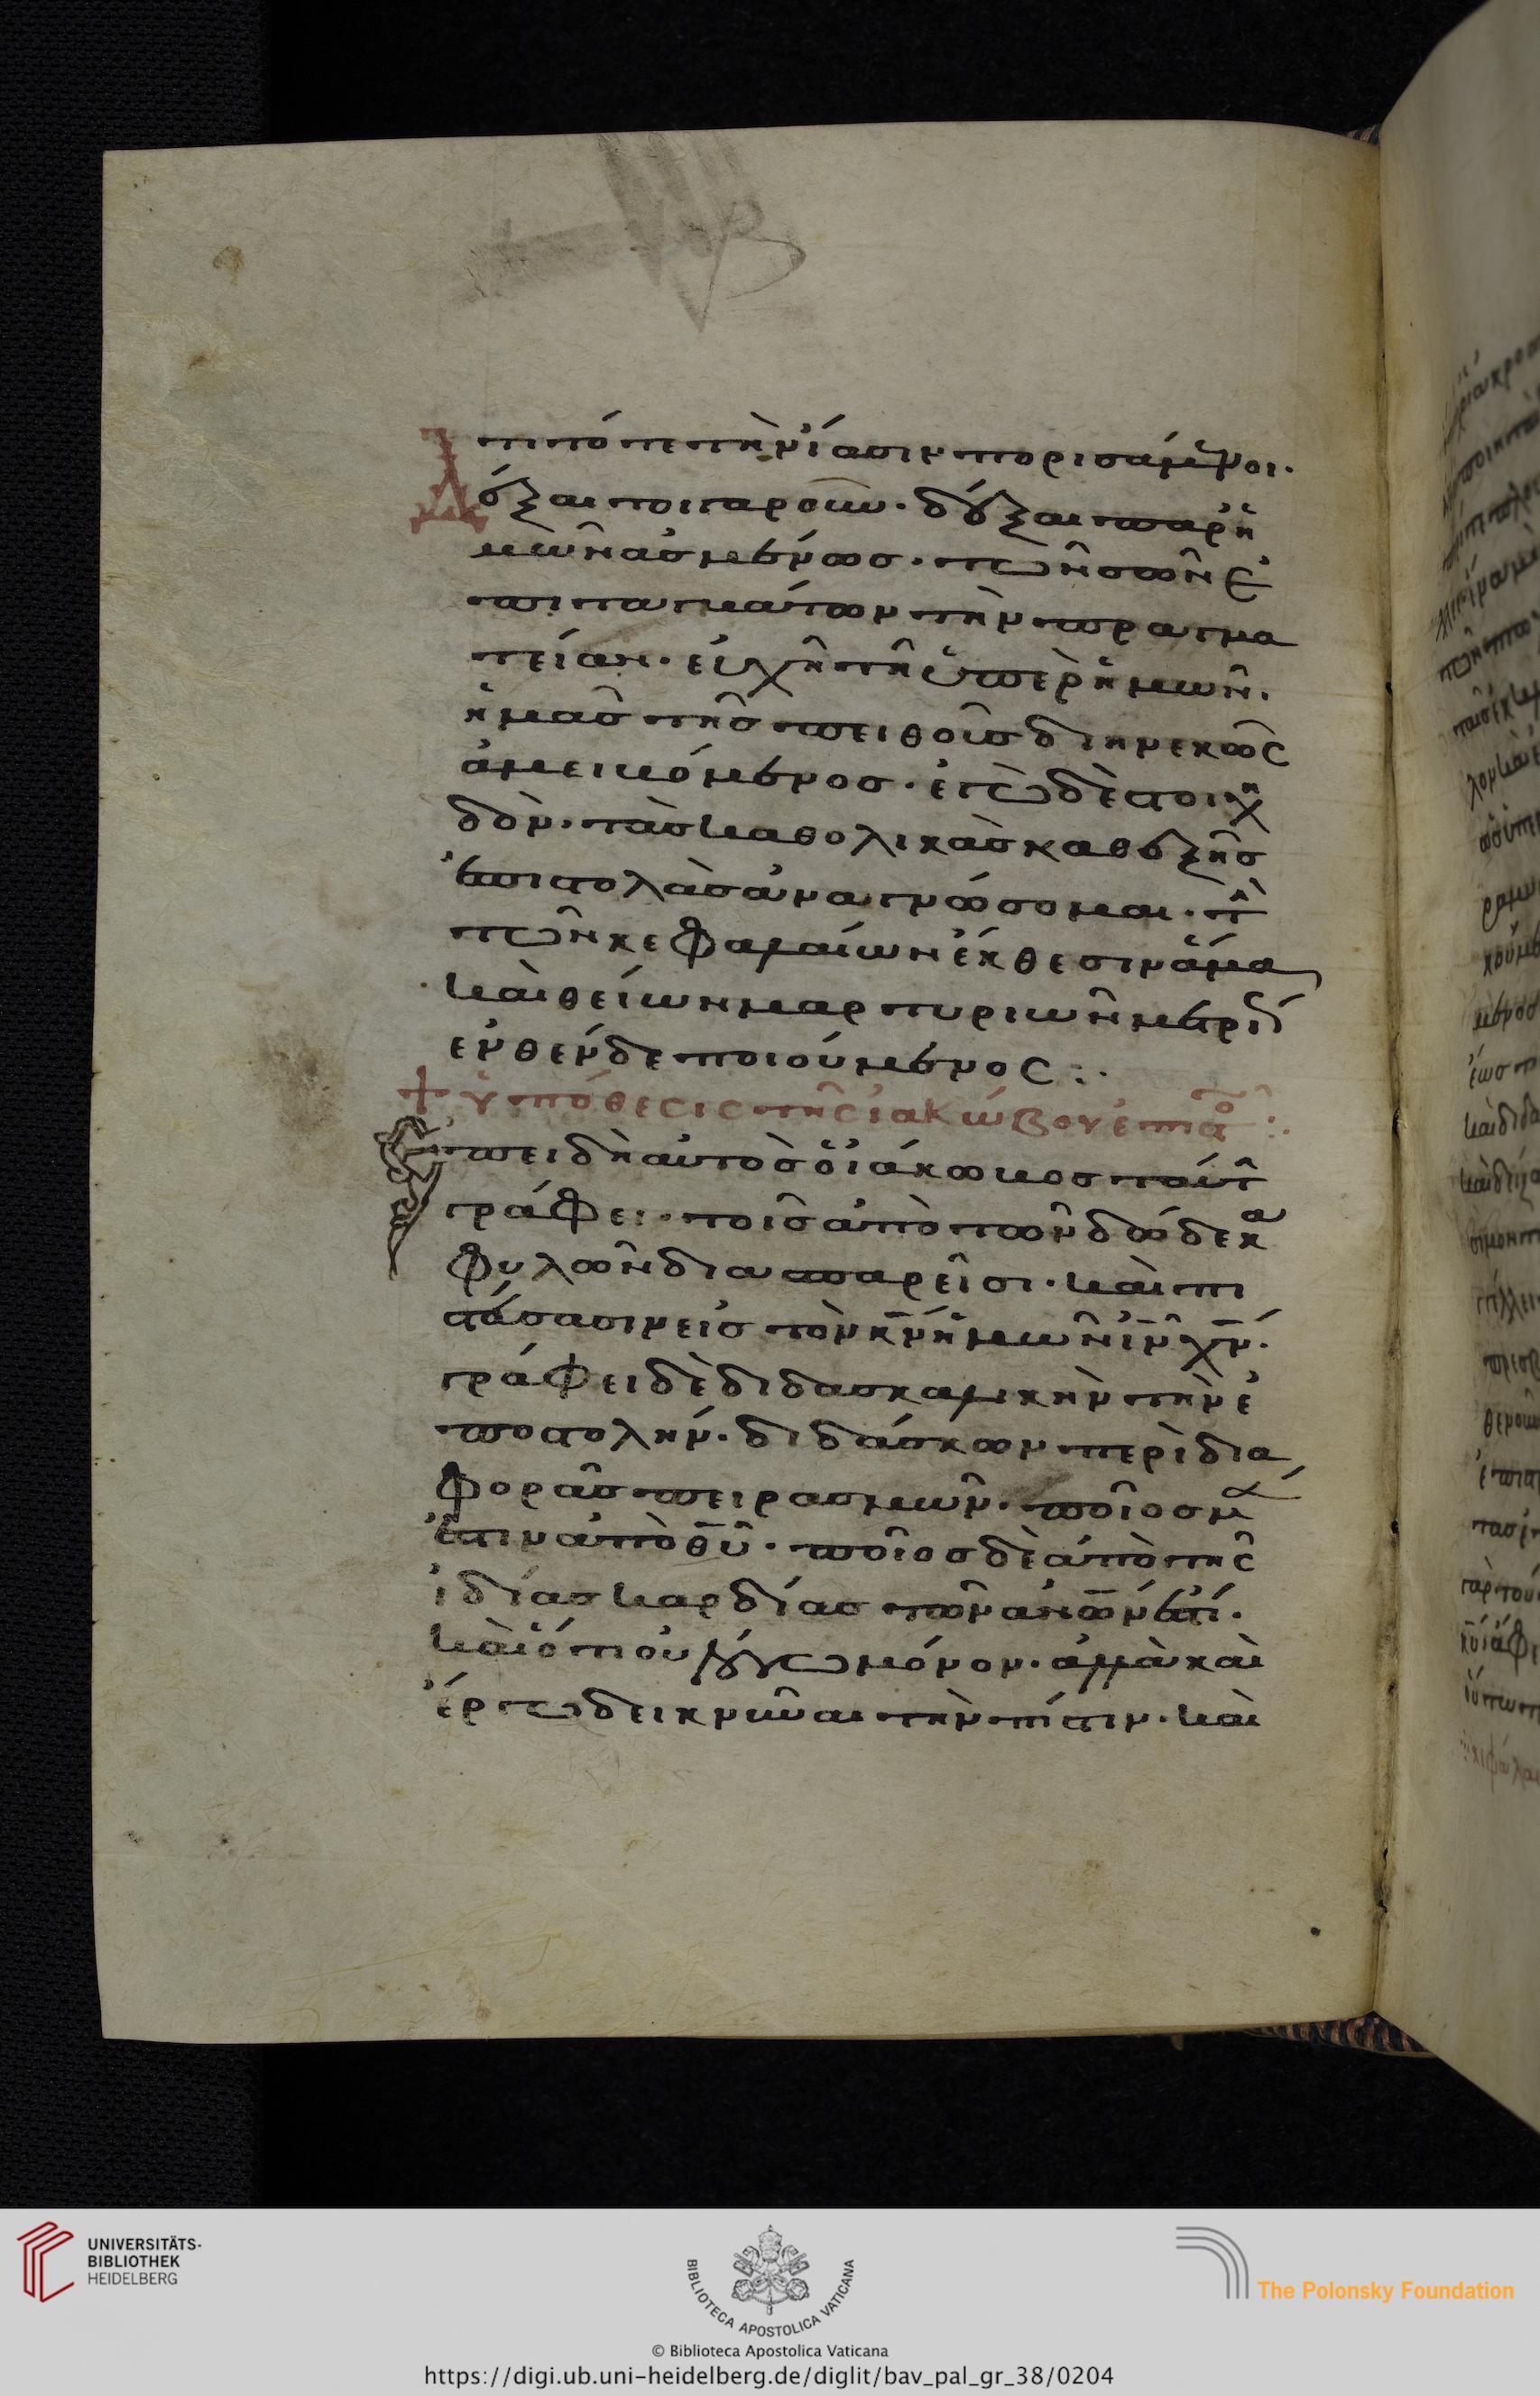 τιτότητι τὴν ἴασιν πορισάμενοι.
Δόξαι τοιγαροῦν. δέξαι παρ' ἡ
μῶν ἀσμένως. τῶν σῶν ἐ
πιταγμάτων τὴν πραγμα
τείαν. εὐχῆ τῆ ὑπὲρ ἡμῶν.
ἡμᾶς τῆς πειθοῦς διηνεκῶς
ἀμειβόμενος. ἐγὼ δὲ στοιχη
δὸν. τὰς καθολικὰς καθεξῆς
ἐπιστολὰς ἀναγνώσομαι. τὴν
τῶν κεφαλαίων ἔκθεσιν ἅμα
καὶ θείων μαρτυριῶν μετρί
ενθένδε ποιούμενος :.
+ ὑπόθεσις τῆς ἰακώβου ἐπιστο :.
Ἐπειδὴ αὐτὸς ὁ ἰάκωβος ταύτην
γράφει. τοῖς ἀπὸ τῶν δώδεκα
φυλῶν διασπαρεῖσι. καὶ πι
στεύσασιν εἰς τὸν κν ἡμῶν ιν χν.
γράφει δὲ διδασκαλικὴν τὴν ἐ
πιστολήν. διδάσκων περὶ δια
φορᾶς πειρασμῶν. ποῖος μὲν
ἐστιν ἀπὸ θυ. ποῖος δὲ ἀπὸ τῆς
ἰδίας καρδίας τῶν ανων ἐστί.
καὶ ὅτι οὐ λόγω μόνον. ἀλλὰ καὶ
ἔργω δεικνῦναι τὴν πίστιν. καὶ
UNIVERSITÄTS-
BIBLIOTHEK
HEIDELBERG
BIBLIOTECA APOSTOLICA VATICANA
The Polonsky Foundation
© Biblioteca Apostolica Vaticana
https://digi.ub.uni-heidelberg.de/diglit/bav_pal_gr_38/0204